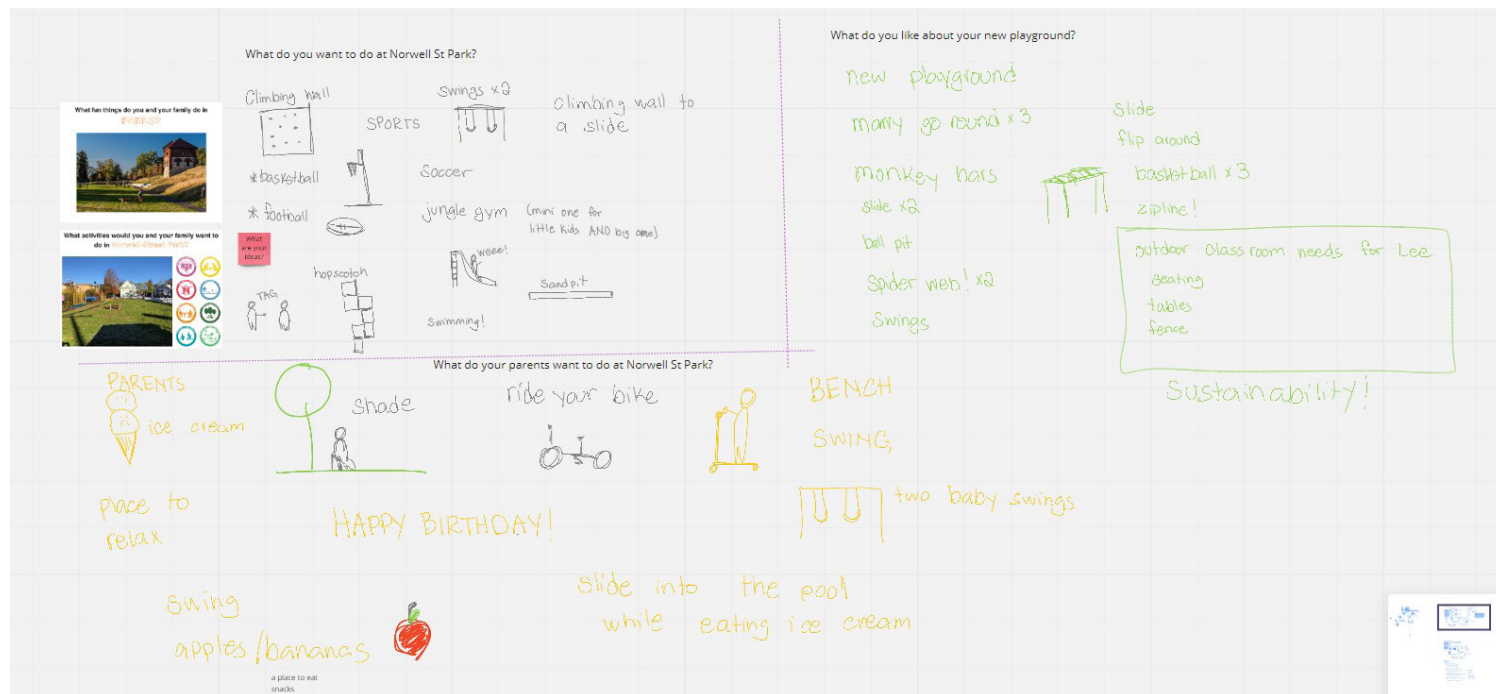 What do you want to do at Norwell St Park?
What fun things do you and your family do in
PARKS?
What activities would you and your family want to
do in Norwell Street Park?
What
are your
ideas?
Climbing wall
SPORTS
Swings x2
Climbing wall to
a slide
*basketball
Soccer
* football
jungle gym (mini one for
little kids AND big one)
hopscotch
weee!
Sandpit
TAG
Swimming!
What do you like about your new playground?
new playground
marry go round x 3
monkey bars
slide x2
ball pit
Spider web! x2
Swings
Slide
flip around
basketball x 3
zipline!
outdoor classroom needs for Lee
Seating
tables
fence
Sustainability!
What do your parents want to do at Norwell St Park?
PARENTS
ice cream
shade
ride your bike
BENCH
SWING,
two baby swings
place to
relax
HAPPY BIRTHDAY!
swing
apples/bananas
a place to eat
snacks
slide into the pool
while eating ice cream